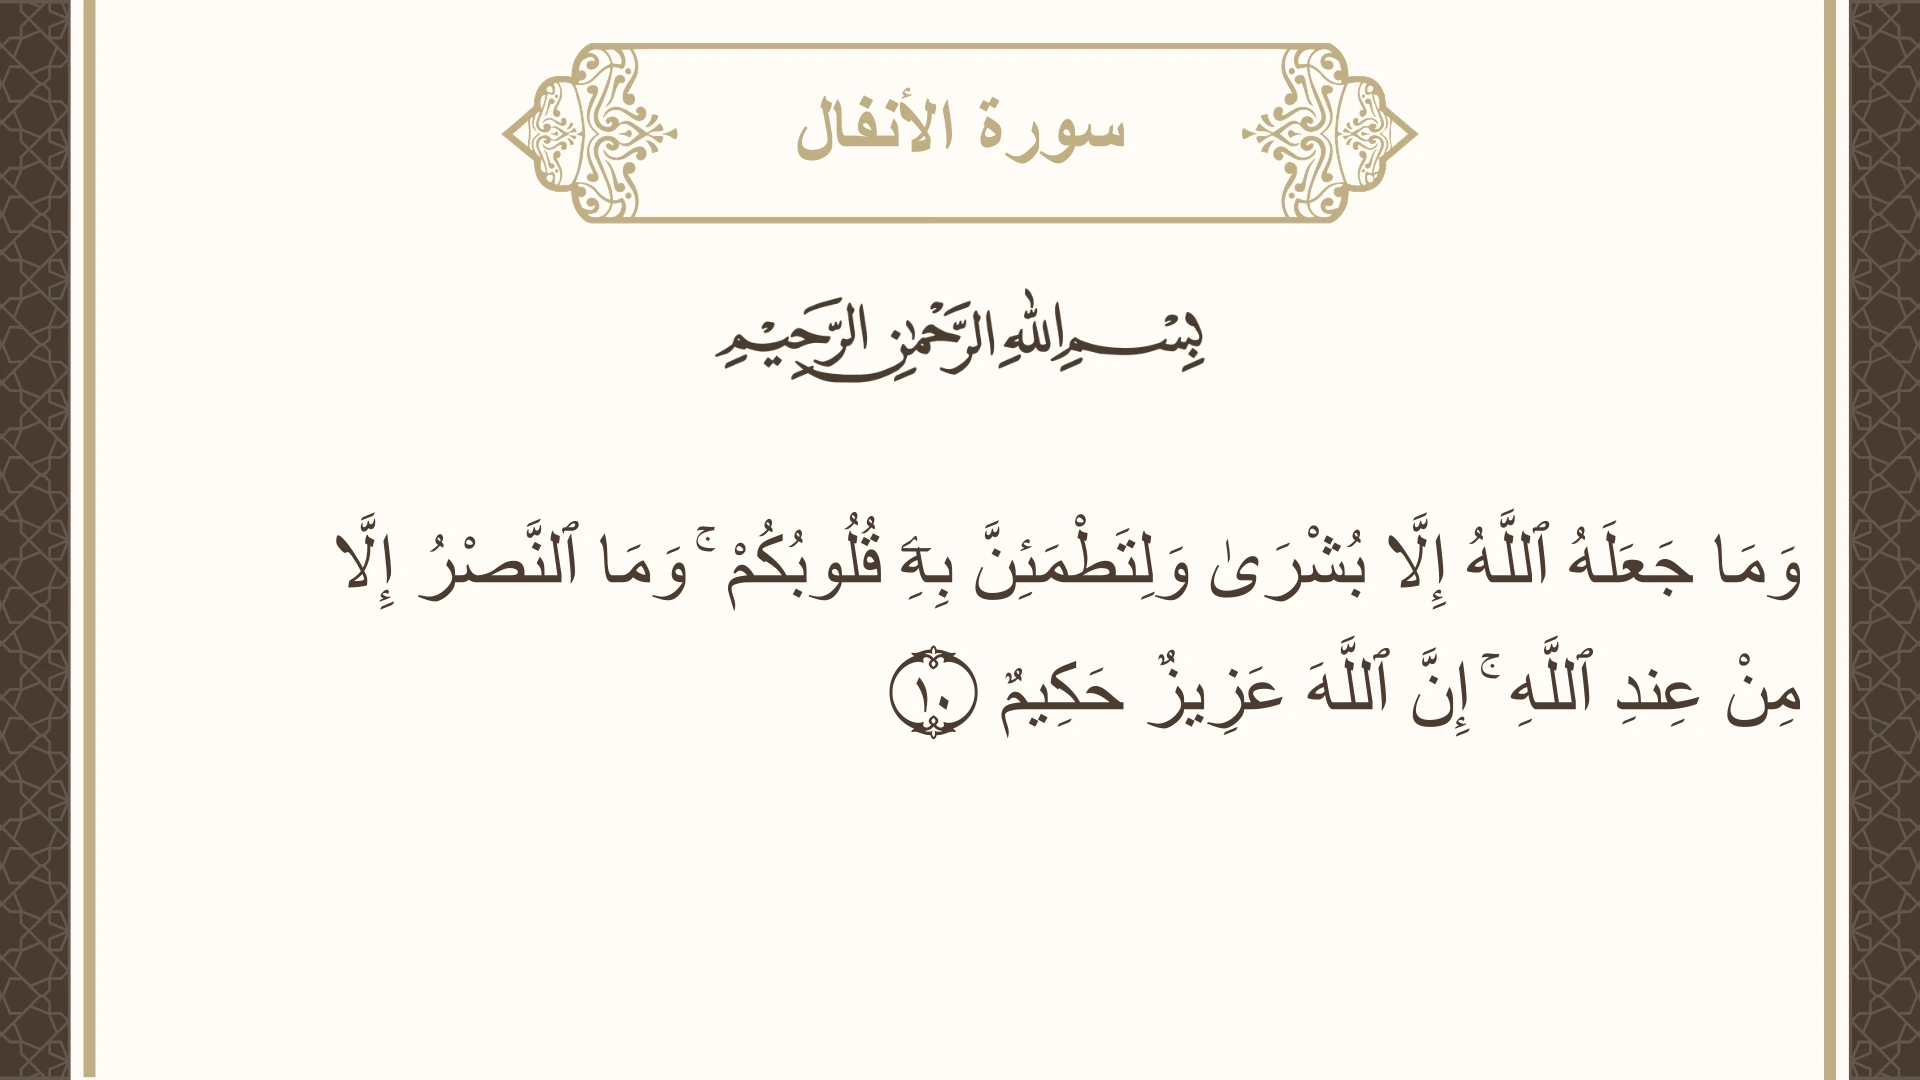 سورة الأنفال
بِسْمِ اللهِ الرَّحْمٰنِ الرَّحِيْمِ
وَمَا جَعَلَهُ ٱللَّهُ إِلَّا بُشْرَىٰ وَلِتَطْمَئِنَّ بِهِۦٓ قُلُوبُكُمْ ۚ وَمَا ٱلنَّصْرُ إِلَّا
مِنْ عِندِ ٱللَّهِ ۚ إِنَّ ٱللَّهَ عَزِيزٌ حَكِيمٌ ١٠